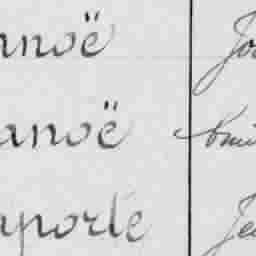 anoë Jo
anoë Emi
aporte Je